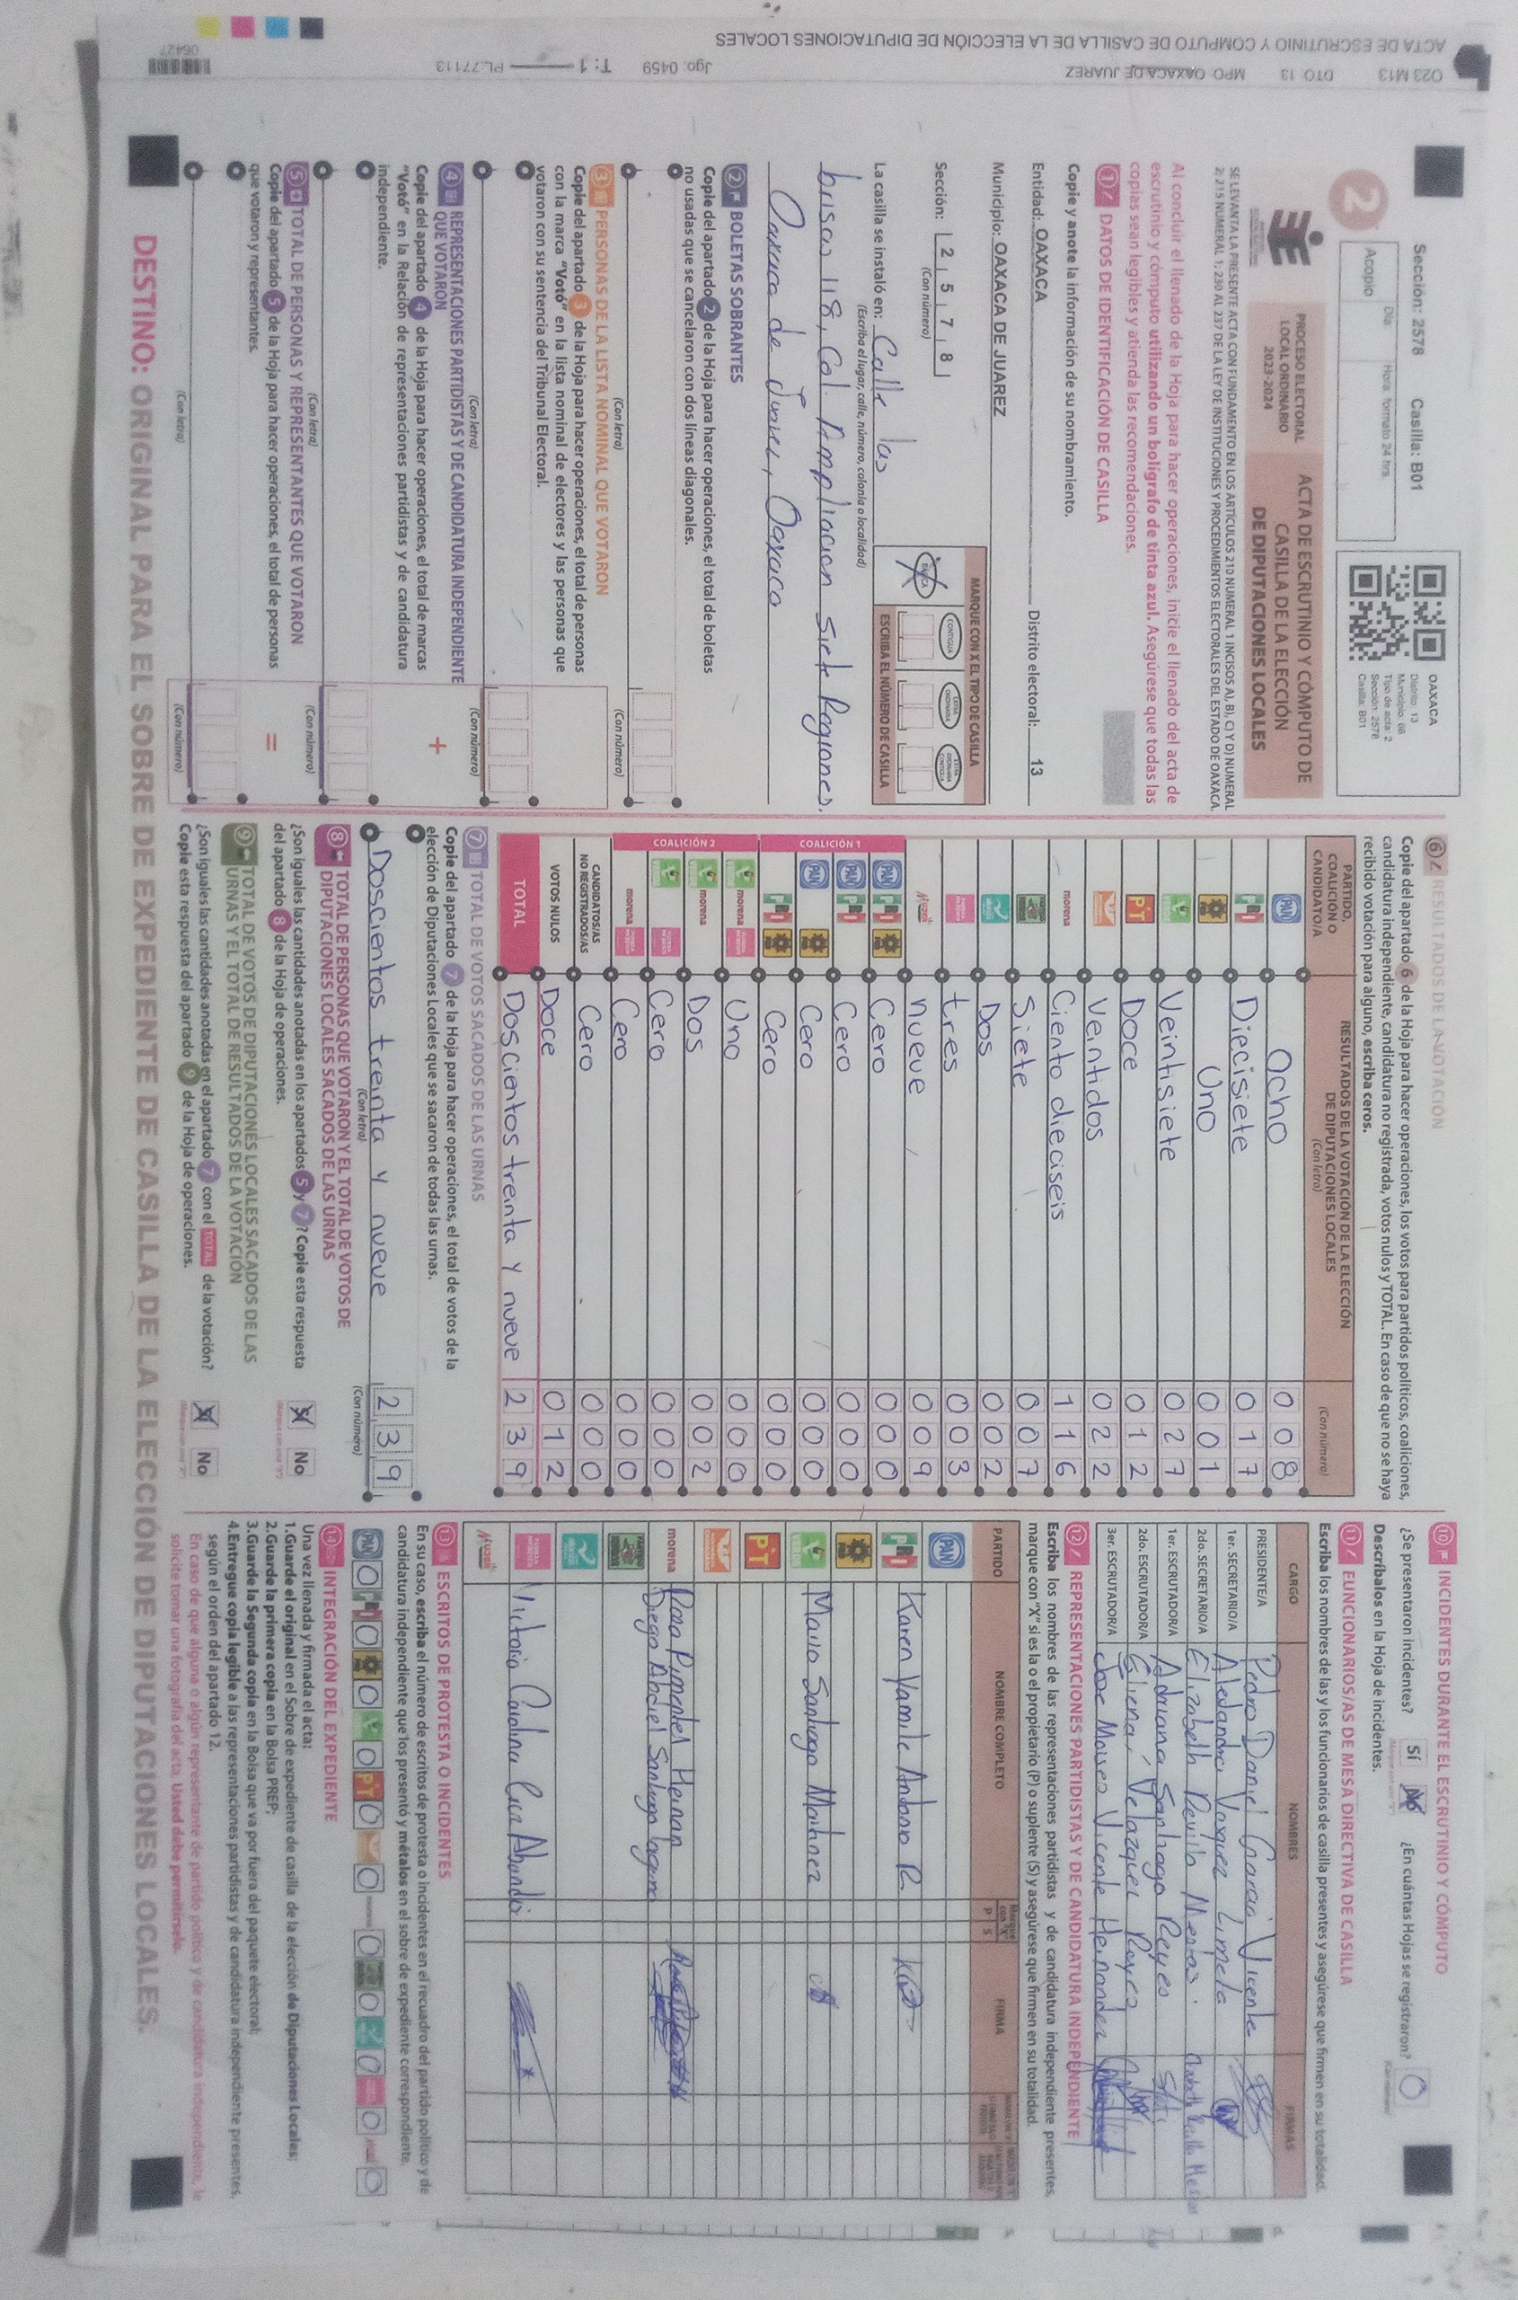 Sección: 2578 Casilla: B01
2
Acopio
Día:
Hora: formato 24 hrs.
OAXACA
Distrito: 13
Municipio: 68
Tipo de acta: 2
Sección: 2578
Casilla: B01
PROCESO ELECTORAL
LOCAL ORDINARIO
2023-2024
ACTA DE ESCRUTINIO Y CÓMPUTO DE
CASILLA DE LA ELECCIÓN
DE DIPUTACIONES LOCALES
SE LEVANTA LA PRESENTE ACTA CON FUNDAMENTO EN LOS ARTÍCULOS 210 NUMERAL 1 INCISOS A), B), C) Y D) NUMERAL
2; 215 NUMERAL 1; 230 AL 237 DE LA LEY DE INSTITUCIONES Y PROCEDIMIENTOS ELECTORALES DEL ESTADO DE OAXACA.
Al concluir el llenado de la Hoja para hacer operaciones, inicie el llenado del acta de
escrutinio y cómputo utilizando un bolígrafo de tinta azul. Asegúrese que todas las
copias sean legibles y atienda las recomendaciones.
1 DATOS DE IDENTIFICACIÓN DE CASILLA
Copie y anote la información de su nombramiento.
Entidad: OAXACA Distrito electoral: 13
Municipio: OAXACA DE JUAREZ
Sección: 2 5 7 8
(Con número)
MARQUE CON X EL TIPO DE CASILLA
BÁSICA
CONTIGUA
EXTRA ORDINARIA
EXTRA ORDINARIA CONTIGUA
ESCRIBA EL NÚMERO DE CASILLA
La casilla se instaló en: Calle las
(Escriba el lugar, calle, número, colonia o localidad)
brisas 118, Col. Ampliacion Siete Regiones.
Oaxaca de Juárez, Oaxaca
2 BOLETAS SOBRANTES
Copie del apartado 2 de la Hoja para hacer operaciones, el total de boletas
no usadas que se cancelaron con dos líneas diagonales.
(Con letra)
(Con número)
3 PERSONAS DE LA LISTA NOMINAL QUE VOTARON
Copie del apartado 3 de la Hoja para hacer operaciones, el total de personas
con la marca "Votó" en la lista nominal de electores y las personas que
votaron con su sentencia del Tribunal Electoral.
(Con letra)
(Con número)
+
4 REPRESENTACIONES PARTIDISTAS Y DE CANDIDATURA INDEPENDIENTE
QUE VOTARON
Copie del apartado 4 de la Hoja para hacer operaciones, el total de marcas
"Votó" en la Relación de representaciones partidistas y de candidatura
independiente.
(Con letra)
(Con número)
=
5 TOTAL DE PERSONAS Y REPRESENTANTES QUE VOTARON
Copie del apartado 5 de la Hoja para hacer operaciones, el total de personas
que votaron y representantes.
(Con letra)
(Con número)
6 RESULTADOS DE LA VOTACIÓN
Copie del apartado 6 de la Hoja para hacer operaciones, los votos para partidos políticos, coaliciones,
candidatura independiente, candidatura no registrada, votos nulos y TOTAL. En caso de que no se haya
recibido votación para alguno, escriba ceros.
PARTIDO,
COALICIÓN O
CANDIDATO/A
RESULTADOS DE LA VOTACIÓN DE LA ELECCIÓN
DE DIPUTACIONES LOCALES
(Con letra)
(Con número)
PAN Ocho 0 0 8
PRI Diecisiete 0 1 7
Uno 0 0 1
Veintisiete 0 2 7
PT Doce 0 1 2
Veintidos 0 2 2
morena Ciento dieciseis 1 1 6
Siete 0 0 7
Dos 0 0 2
tres 0 0 3
nueve 0 0 9
COALICIÓN 1
PAN PRI Cero 0 0 0
PAN PRI Cero 0 0 0
PAN Cero 0 0 0
PRI Cero 0 0 0
COALICIÓN 2
morena Uno 0 0 0
morena Dos 0 0 2
Cero 0 0 0
morena Cero 0 0 0
CANDIDATOS/AS
NO REGISTRADOS/AS Cero 0 0 0
VOTOS NULOS Doce 0 1 2
TOTAL Doscientos treinta y nueve 2 3 9
7 TOTAL DE VOTOS SACADOS DE LAS URNAS
Copie del apartado 7 de la Hoja para hacer operaciones, el total de votos de la
elección de Diputaciones Locales que se sacaron de todas las urnas.
Doscientos treinta y nueve 2 3 9
(Con letra)
(Con número)
8 TOTAL DE PERSONAS QUE VOTARON Y EL TOTAL DE VOTOS DE
DIPUTACIONES LOCALES SACADOS DE LAS URNAS
¿Son iguales las cantidades anotadas en los apartados 5 y 7? Copie esta respuesta
del apartado 8 de la Hoja de operaciones.
Sí No
9 TOTAL DE VOTOS DE DIPUTACIONES LOCALES SACADOS DE LAS
URNAS Y EL TOTAL DE RESULTADOS DE LA VOTACIÓN
¿Son iguales las cantidades anotadas en el apartado 7 con el TOTAL de la votación?
Copie esta respuesta del apartado 9 de la Hoja de operaciones.
Sí No
10 INCIDENTES DURANTE EL ESCRUTINIO Y CÓMPUTO
¿Se presentaron incidentes? Sí No ¿En cuántas Hojas se registraron? 0
Descríbalos en la Hoja de incidentes.
11 FUNCIONARIOS/AS DE MESA DIRECTIVA DE CASILLA
Escriba los nombres de las y los funcionarios de casilla presentes y asegúrese que firmen en su totalidad.
CARGO NOMBRES FIRMAS
PRESIDENTE/A Pedro Daniel Garcia Vicente
1er. SECRETARIO/A Alejandro Vasquez Limeta
2do. SECRETARIO/A Elizabeth Revilla Mesias.
1er. ESCRUTADOR/A Adriana Santiago Reyes
2do. ESCRUTADOR/A Gliena Velazquez Reyes
3er. ESCRUTADOR/A Jose Moises Vicente Hernandez
12 REPRESENTACIONES PARTIDISTAS Y DE CANDIDATURA INDEPENDIENTE
Escriba los nombres de las representaciones partidistas y de candidatura independiente presentes,
marque con "X" si es la o el propietario (P) o suplente (S) y asegúrese que firmen en su totalidad.
PARTIDO NOMBRE COMPLETO P S FIRMA
PAN
PRI Karen Yamile Antonio R.
Mario Santiago Martinez
PT
morena Rosa Pimentel Heinan
Diego Abdiel Santiago Laguna
Victoria Carolina Cruz Abundis
13 ESCRITOS DE PROTESTA O INCIDENTES
En su caso, escriba el número de escritos de protesta o incidentes en el recuadro del partido político y de
candidatura independiente que los presentó y métalos en el sobre de expediente correspondiente.
PAN 0 PRI 0 0 0 PT 0 0 morena 0 0 0 0 0
14 INTEGRACIÓN DEL EXPEDIENTE
Una vez llenada y firmada el acta:
1.Guarde el original en el Sobre de expediente de casilla de la elección de Diputaciones Locales;
2.Guarde la primera copia en la Bolsa PREP;
3.Guarde la Segunda copia en la Bolsa que va por fuera del paquete electoral;
4.Entregue copia legible a las representaciones partidistas y de candidatura independiente presentes,
según el orden del apartado 12.
En caso de que alguna o algún representante de partido político y de candidatura independiente, le
solicite tomar una fotografía del acta. Usted debe permitírselo.
DESTINO: ORIGINAL PARA EL SOBRE DE EXPEDIENTE DE CASILLA DE LA ELECCIÓN DE DIPUTACIONES LOCALES.
O23 M13 DTO. 13 MPO. OAXACA DE JUAREZ Jgo: 0459 T: 1 PL.77113 06427
ACTA DE ESCRUTINIO Y COMPUTO DE CASILLA DE LA ELECCIÓN DE DIPUTACIONES LOCALES